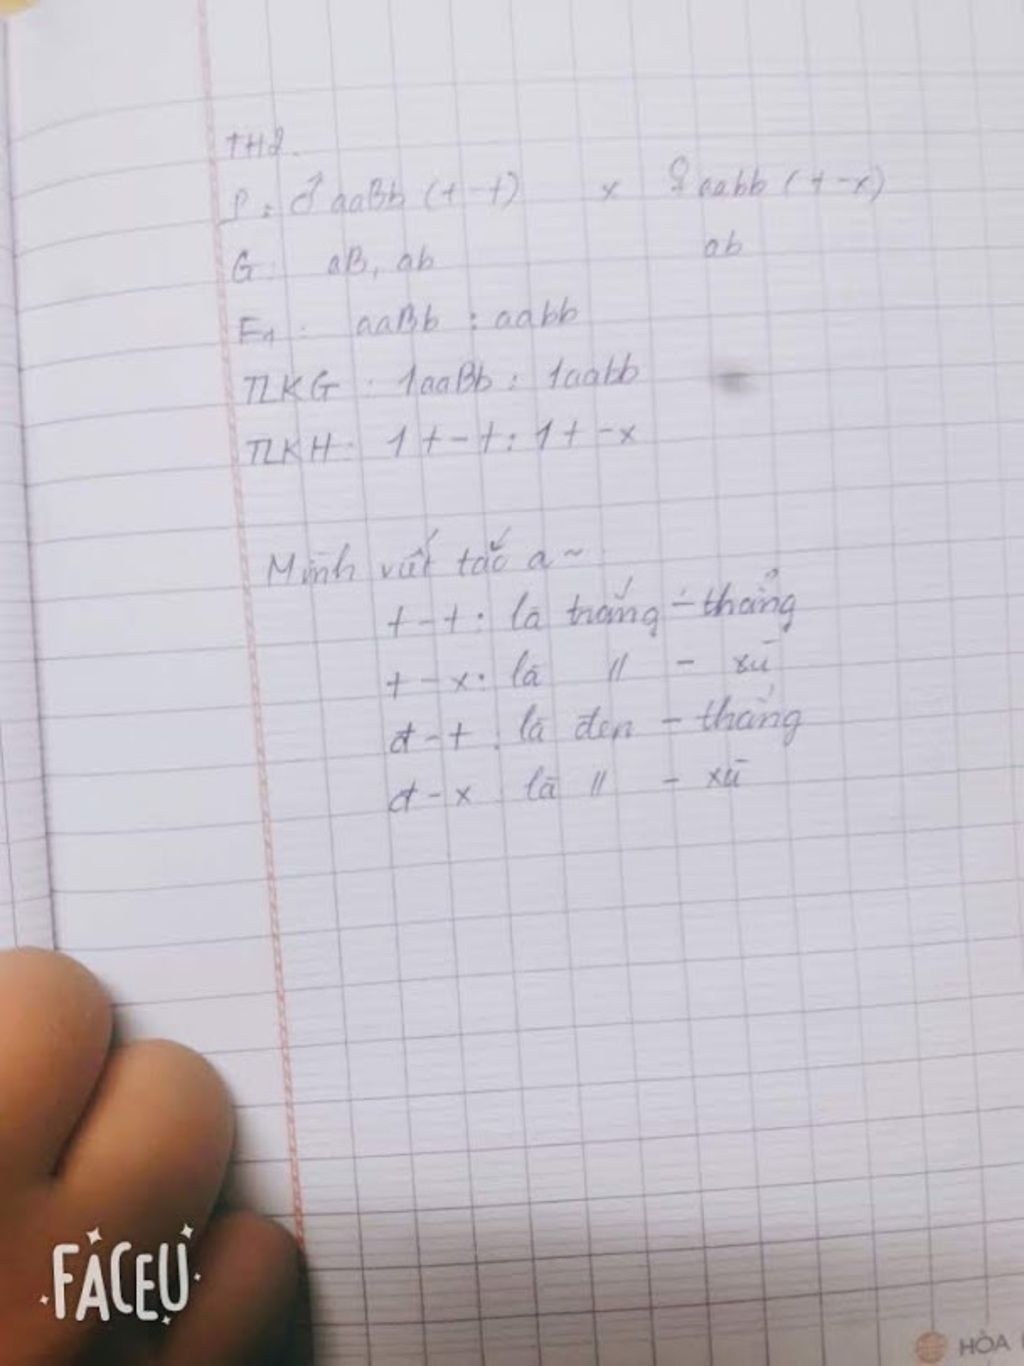 TH2.
P: ♂ aaBb (t-t) x ♀ aabb (t-x)
G: aB, ab ab
F1: aaBb : aabb
TLKG: 1aaBb : 1aabb
TLKH: 1t-t : 1t-x
Mình viết tắc a~
t-t: là trắng - thẳng
t-x: là // - xù
đ-t: là đen - thẳng
đ-x là // - xù
FACEU
HÒA